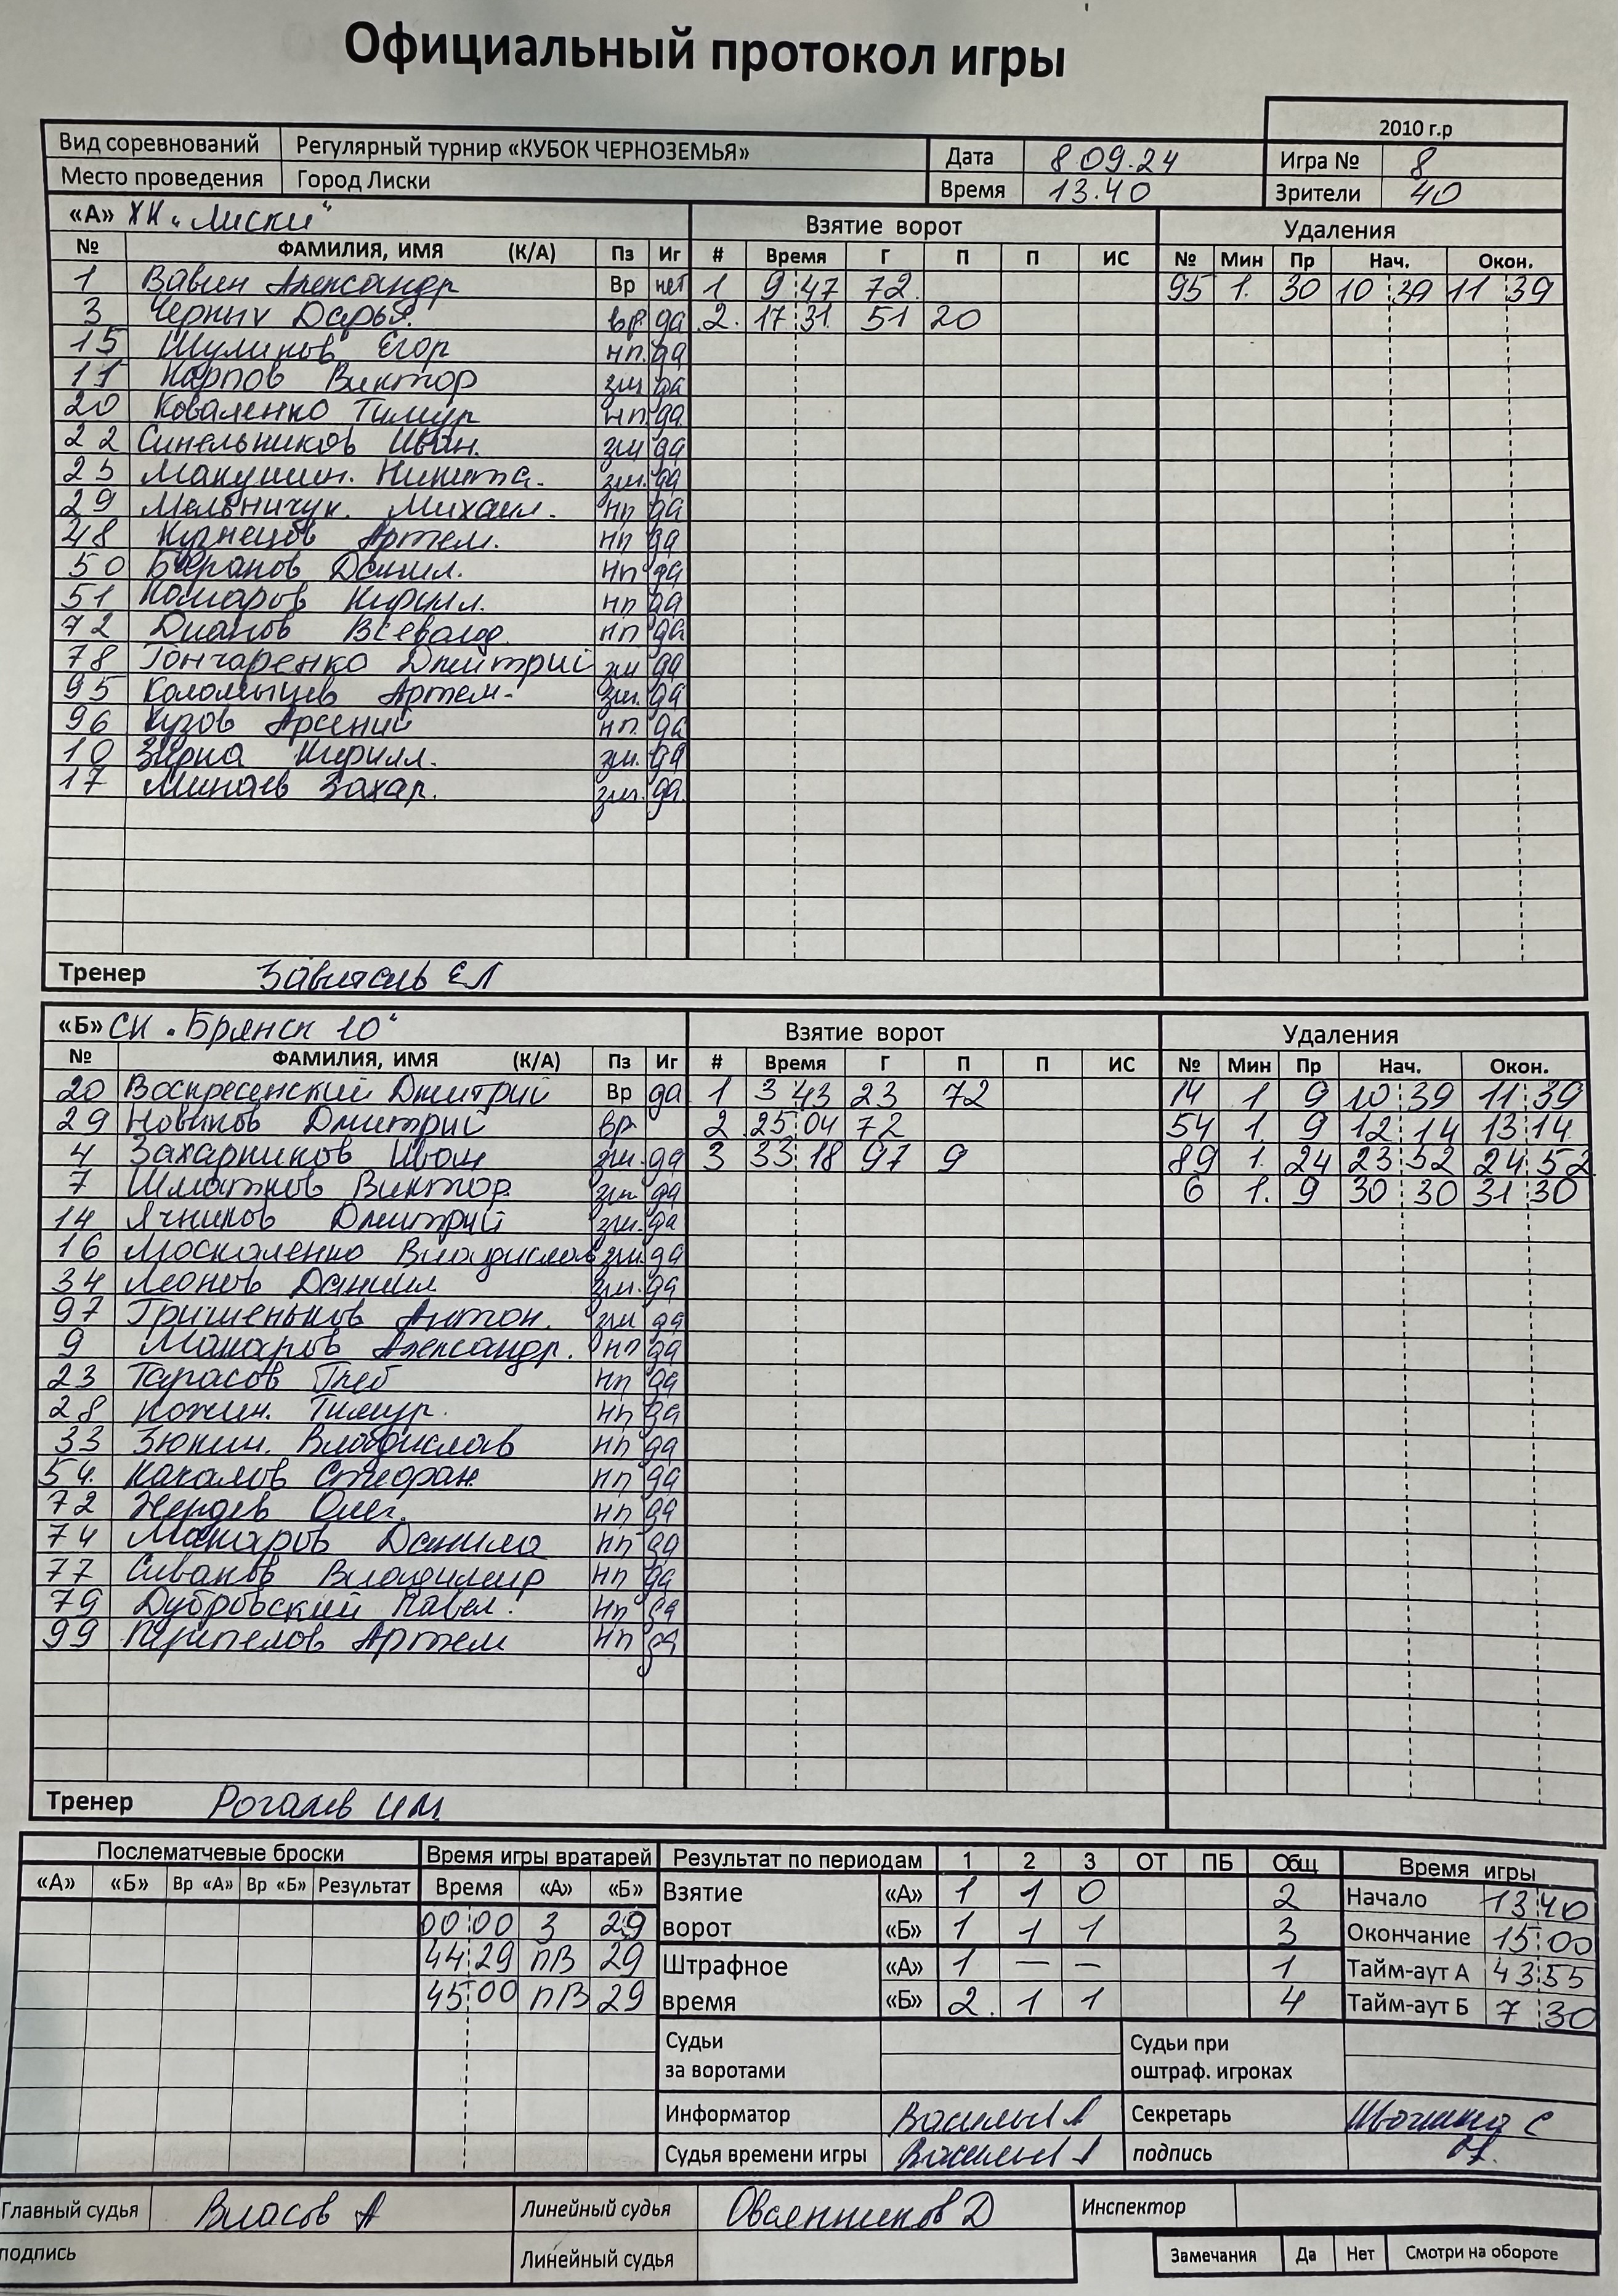 Официальный протокол игры
2010 г.р
Вид соревнований Регулярный турнир «КУБОК ЧЕРНОЗЕМЬЯ» Дата 8 09.24 Игра № 8
Место проведения Город Лиски Время 13.40 Зрители 40
«А» ХК "Лиски" Взятие ворот Удаления
№ ФАМИЛИЯ, ИМЯ (К/А) Пз Иг # Время Г П П ИС № Мин Пр Нач. Окон.
1 Вавин Александр Вр нет 1 9 47 72 95 1. 30 10 39 11 39
3 Черных Дарья вр да 2. 17 31 51 20
15 Шуликов Егор нп. да
11 Карпов Виктор зщ да
20 Коваленко Тимур нп да
22 Синельников Иван. зщ да
25 Макушин. Никита. зщ. да
29 Мельничук. Михаил. нп да
48 Кузнецов Артем. нп да
50 Баранов Данил. нп да
51 Комаров Кирилл. нп да
72 Дианов Всеволод. нп да
78 Гончаренко Дмитрий зщ да
95 Коломыцев Артем. зщ. да
96 Кузов Арсений нп. да
10 Зирка Кирилл. зщ. да
17 Минаев Захар. зщ. да.
Тренер ЕЛ
«Б» СК "Брянск 10" Взятие ворот Удаления
№ ФАМИЛИЯ, ИМЯ (К/А) Пз Иг # Время Г П П ИС № Мин Пр Нач. Окон.
20 Воскресенский Дмитрий Вр да 1 3 43 23 72 14 1 9 10 39 11 39
29 Новиков Дмитрий вр 2 25 04 72 54 1. 9 12 14 13 14
4 Захарников Иван зщ. да 3 33 18 97 9 89 1. 24 23 52 24 52
7 Шматков Виктор зщ да 6 1. 9 30 30 31 30
14 Ячников Дмитрий зщ. да
16 Москаленко Владислав зщ. да
34 Леонов Даниил зщ. да
97 Гришеньков Антон. зщ да
9 Макаров Александр. нп да
23 Тарасов Глеб нп да
28 Кожин. Тимур. нп да
33 Зюкин. Владислав нп да
54. Качалов Степан нп да
72 Жердев Олег. нп да
74 Макаров Данила нп да
77 Сиваков Владимир нп да
79 Дубровский Павел. нп да
99 Перепелов Артем нп да
Тренер Рогалев И.М.
Послематчевые броски Время игры вратарей Результат по периодам 1 2 3 ОТ ПБ Общ Время игры
«А» «Б» Вр «А» Вр «Б» Результат Время «А» «Б» Взятие «А» 1 1 0 2 Начало 13 40
00 00 3 29 ворот «Б» 1 1 1 3 Окончание 15 00
44 29 ПВ 29 Штрафное «А» 1 — — 1 Тайм-аут А 43 55
45 00 ПВ 29 время «Б» 2. 1 1 4 Тайм-аут Б 7 30
Судьи за воротами Судьи при оштраф. игроках
Информатор Секретарь
Судья времени игры подпись
Главный судья Власов А Линейный судья Овсянников Д Инспектор
подпись Линейный судья Замечания Да Нет Смотри на обороте